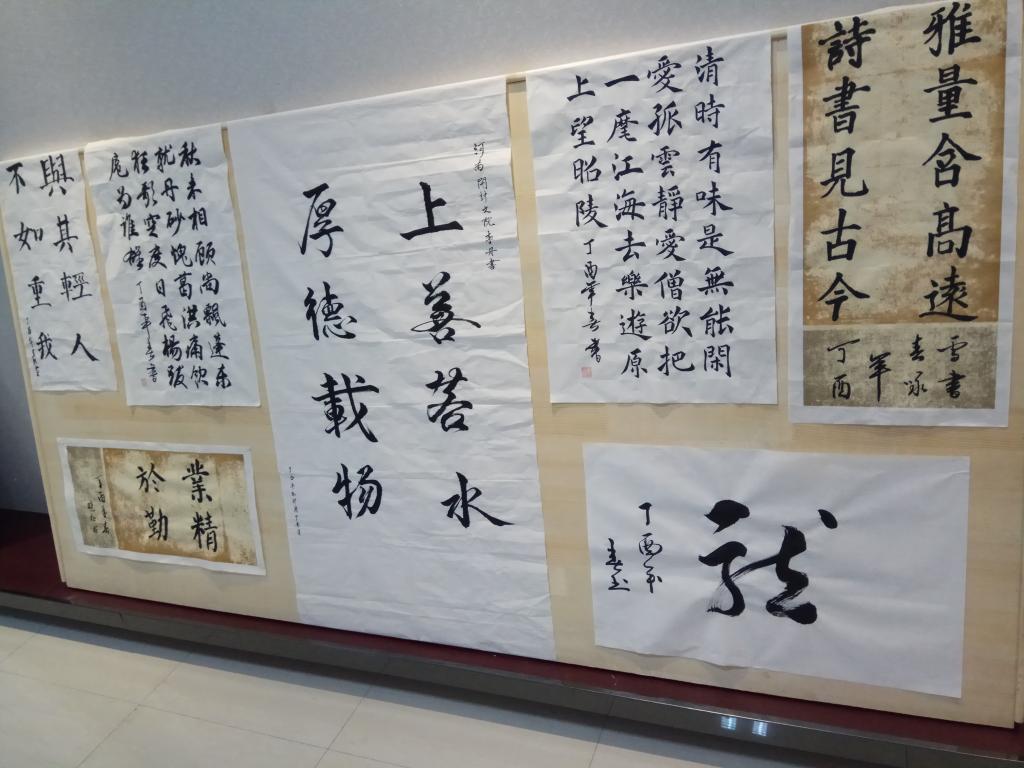 雅量含高遠
詩書見古今
丁酉年
春
雪書
清時有味是無能閑
愛孤雲靜愛僧欲把
一麾江海去樂遊原
上望昭陵
丁酉年春書
上善若水
厚德載物
秋来相顧尚飄蓬未
就丹砂愧葛洪痛飲
狂歌空度日飛揚跋
扈為誰雄
丁酉年春書
與其輕人
不如重我
業精
於勤
丁酉
龍
丁酉年